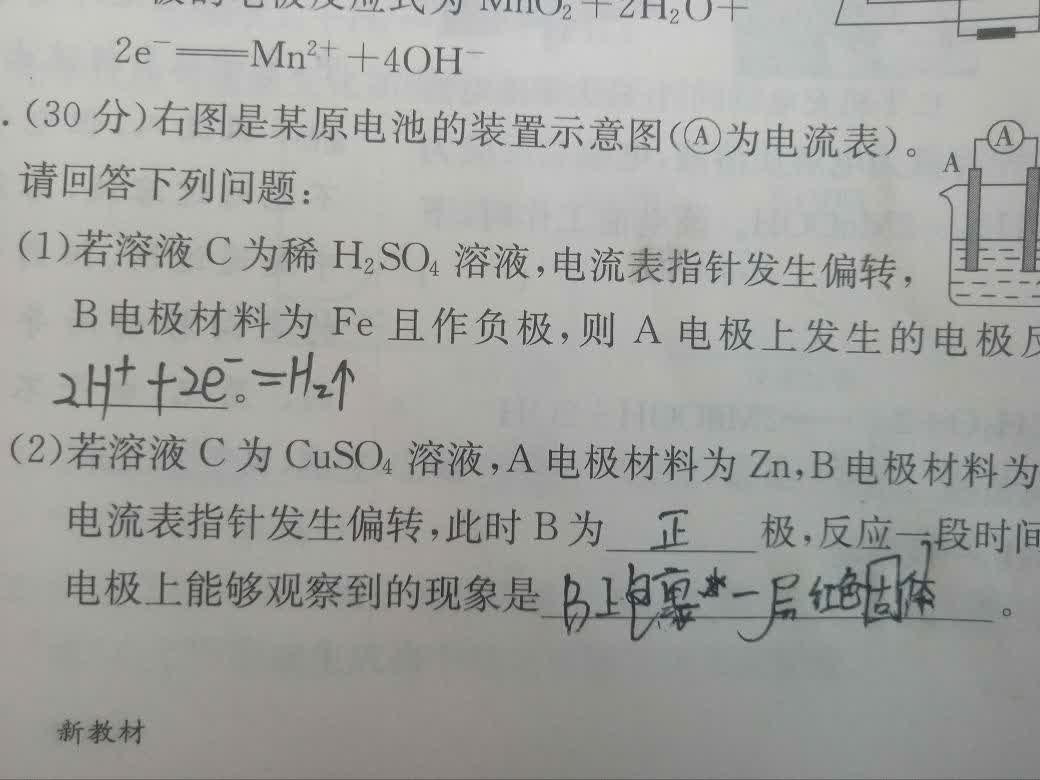 极的电极反应式为 MnO₂+2H₂O+
2e⁻══Mn²⁺+4OH⁻
.(30 分)右图是某原电池的装置示意图(Ⓐ为电流表)。
A
A
请回答下列问题:
(1)若溶液 C 为稀 H₂SO₄ 溶液,电流表指针发生偏转,
B 电极材料为 Fe 且作负极,则 A 电极上发生的电极反
2H⁺+2e⁻=H₂↑。
(2)若溶液 C 为 CuSO₄ 溶液,A 电极材料为 Zn,B 电极材料为
电流表指针发生偏转,此时 B 为 正 极,反应一段时间
电极上能够观察到的现象是 B上包裹 一层红色固体 。
新教材